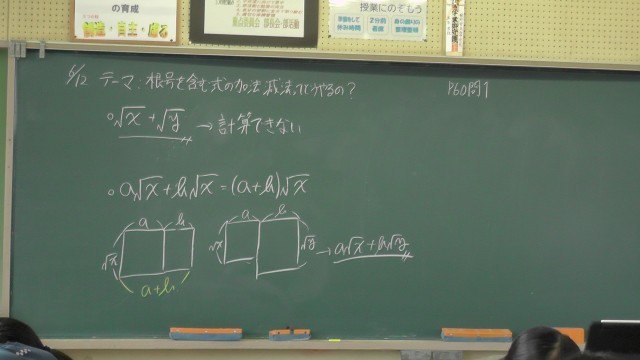 の育成
授業にのぞもう
2分前
6/12 テーマ:根号を含む式の加法、減法ってどうやるの?
P60問1
○√x+√y→計算できない
○a√x+b√x=(a+b)√x
a b
√x
a+b
a b
√x √y
→a√x+b√y